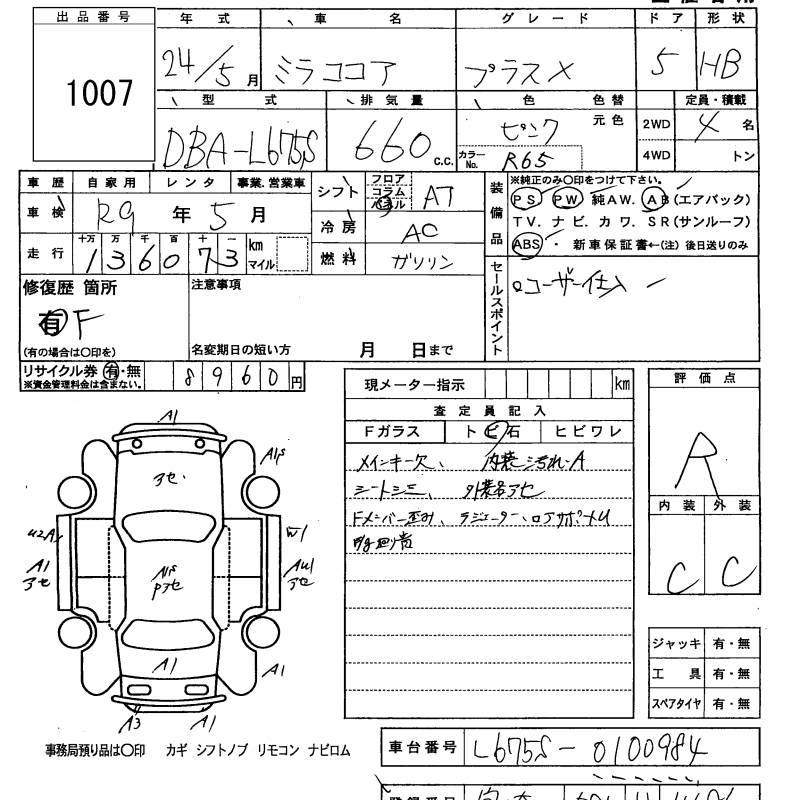 出品番号 年式 車名 グレード ドア 形状
1007 24/5月 ミラココア プラスX 5 HB
型式 排気量 色 色替 定員・積載
DBA-L675S 660 c.c. ピンク 元色 2WD 4名
カラーNo. R65 4WD トン
車歴 自家用 レンタ 事業.営業車 シフト フロア コラム パネル AT
車検 R9年5月 冷房 AC
走行 十万 万 千 百 十 一 km マイル 燃料 ガソリン
136073
装備品 ※純正のみ〇印をつけて下さい。
PS PW 純AW. AB(エアバック)
TV. ナビ. カワ. SR(サンルーフ)
ABS ・ 新車保証書←(注) 後日送りのみ
修復歴 箇所 注意事項
有 F
(有の場合は〇印を) 名変期日の短い方 月 日まで
セールスポイント ユーザー仕入
リサイクル券 有・無 8960円
※資金管理料金は含まない。
現メーター指示 km 評価点
査定員記入 R
Fガラス トビ石 ヒビワレ
メインキー欠、内装ヨゴレ・A
シートシミ、外装名アセ
Fメンバー歪み、ラジエーターロアサポートU
内装 外装
C C
A1
A1S
アセ
U2A W1
A1 アセ A1S Pアセ AU1 アセ
A1 A1
A3 A1
ジャッキ 有・無
工具 有・無
スペアタイヤ 有・無
事務局預り品は〇印 カギ シフトノブ リモコン ナビロム
車台番号 L675S-0100984